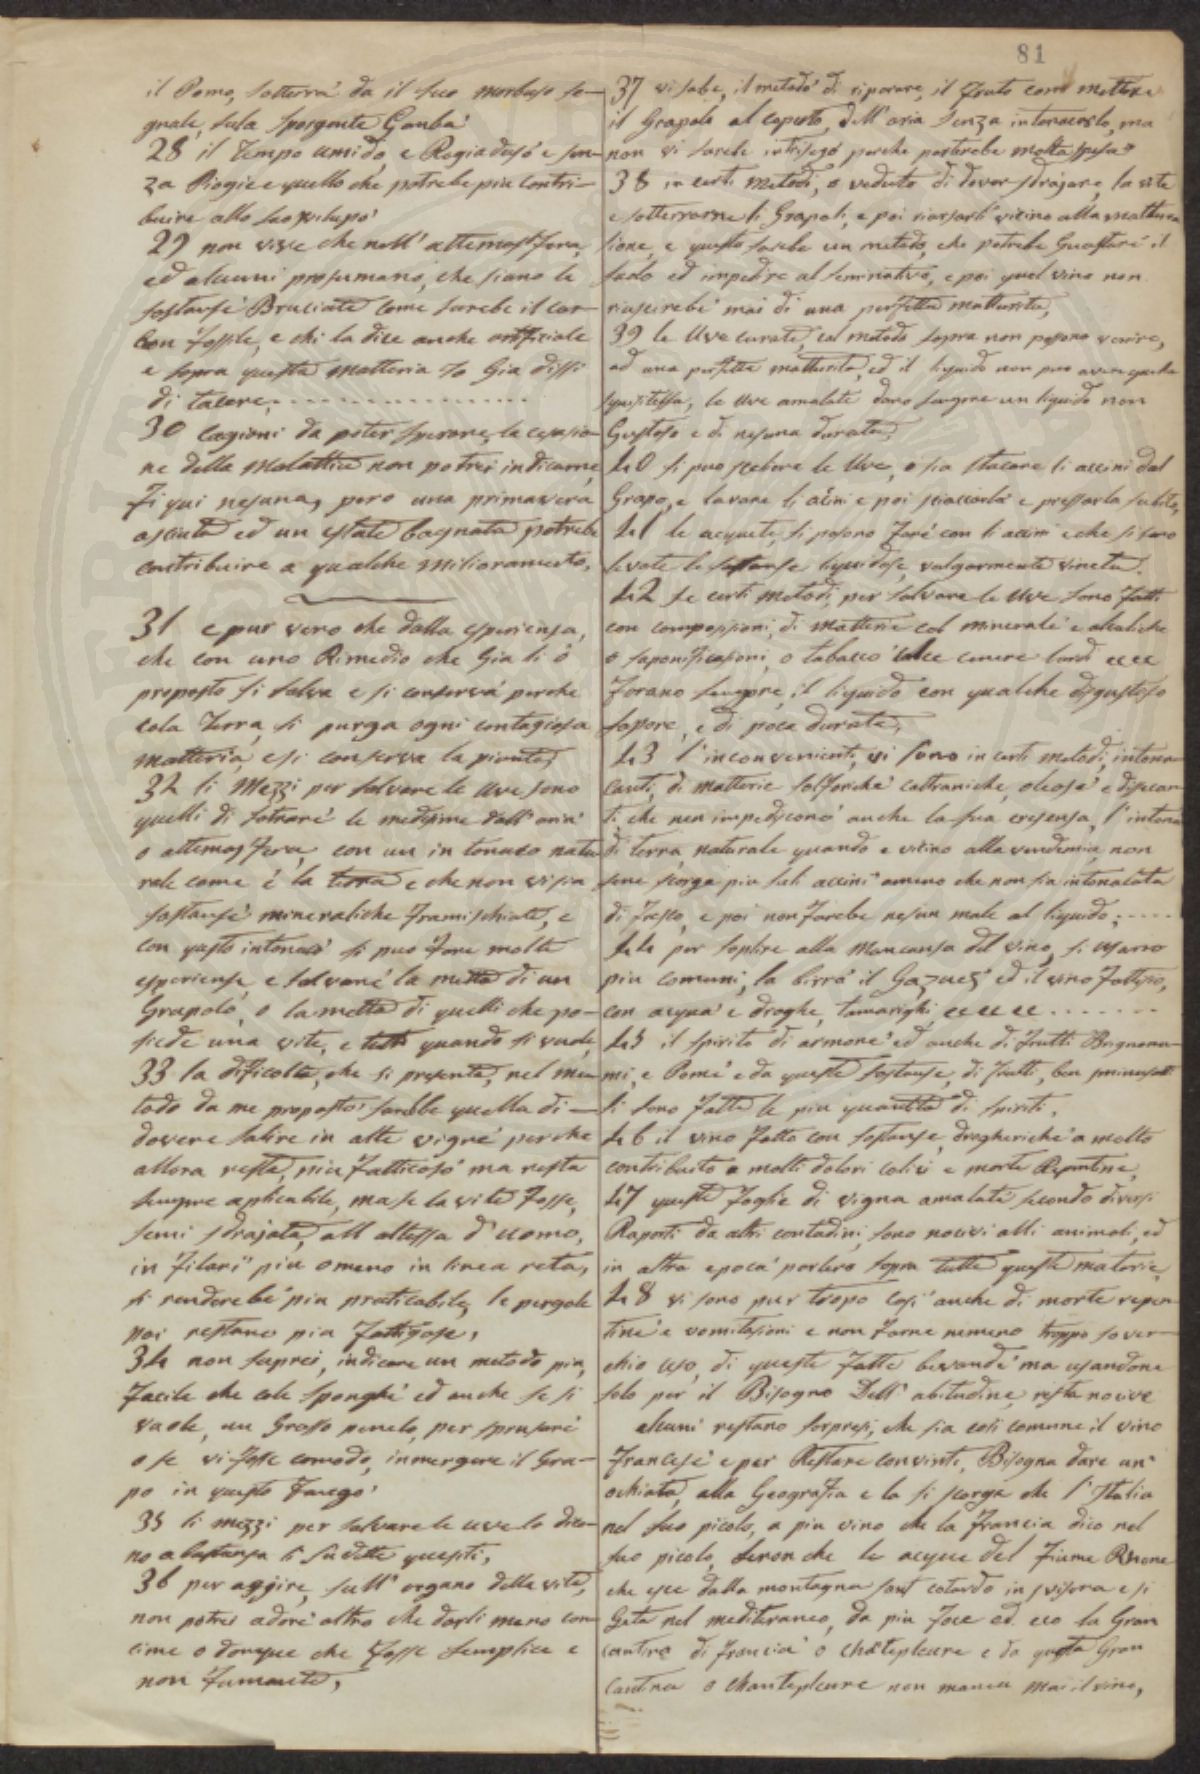 81
il Pomo, sotterrà da il suo morbuso se-
gnale, sula sporgente Gamba
28 il Tempo umido, e Rogiadoso e sen-
za Piogie e quello che potrebe piu contri-
buire allo suo svilupo
29 non vive che nell' attemosffera,
ed alcuni presumano, che siano le
sostanse Bruciate come sarebe il car-
bon fossile, e chi la dice anche artificiale
e sopra questa matteria Io Gia dissi
di tacere
30 Cagioni da poter sperare la cesasio-
ne della Malattia non potrei indicarne,
Fi qui nesuna, pero una primavera
asciuta ed un estate bagnata potrebe
contribuire a qualche milioramento,
31 e pur vero che dalla esperiensa,
che con uno Rimedio che Gia li ò
proposto si salva e si conserva perche
cola Terra, si purga ogni contagiosa
matteria, e si conserva la pianta
32 li Mezzi per salvare le Uve sono
quelli di sotrare le medesime dall' aria
o attemosfera, con un in tonaco natu
rale come è la terra e che non vi sia
sostanse mineraliche framischiate, e
con questo intonaco si puo fare molte
esperiense, e salvare la metta di un
Grapolo, o la metta di quelli che po-
siede una vite, e tutti quando si vuole,
33 la dificolta, che si presenta, nel me-
todo da me proposto sarebbe quella di-
dovere salire in alte vigne perche
allora resta, piu fatticoso ma resta
sempre aplicabile, ma se la vite fosse,
semi sdrajata, all altessa d' uomo,
in filari piu o meno in linea reta,
si renderebe piu praticabile, le pergole
poi restano piu fattigose,
34 non saprei, indicare un metodo piu,
facile che cole sponghe ed anche se si
vuole, un Grosso penelo, per sprusare
o se vi fosse comodo, inmergere il Gra-
po in questo Fango
35 li mezzi per salvare le uve lo dico-
no abastansa li su detti quesiti,
36 per agire, sull' organo della vite,
non potrei adore altro che darli meno con-
cime o donque che fosse semplice e
non fumante,
37 vi sabe, il metodo di riparare, il fruto come mettere
il Grapolo al coperto, dell' aria senza intonacarlo, ma
non vi sarebe intrisego perche portarebe molta spesa
38 in certi metodi, o veduto di dover sdrajare, la vite
e sotterrarne li Grapoli, e poi riarsarli vicino alla mattura
sione, e questo sarebe un metodo, che potrebe Guastare il
suolo ed impedire al seminativo, e poi quel vino non
riuscirebe mai di una perfetta matturita,
39 le Uve curate, col metodo sopra non posono venire,
ad una perfetta matturita, ed il liquido non puo avere quela
squisitessa, le Uve amalate dano sempre un liquido non
Gustoso e di nesuna durata,
40 si puo scelere le Uve, o sia stacare li accini dal
Grapo, e lavare li acini e poi sciaccarli e pressarla subito,
41 le acquete, si posono fare con li accini e che si sono
levate le sostanse liquidose, volgarmente vineta.
42 se certi metodi, per salvare le Uve sono fatti
con composisioni, di matterie col minerale e alcaliche
o saponificasioni, o tabacco calce cenere lardi ecec
sorano sempre, il liquido con qualche disgustoso
sappore, e di poca durata,
43 l' inconvenienti, vi sono in certi metodi, intona-
canti, di matterie solforiche cattramiche, oleose e disecan
ti che non impediscono anche la sua cresensa, l' intona
di terra, naturale, quando e vicino alla vendemia, non
sene scorge piu suli accini ameno che non sia intonacata
di fresco, e poi non farebe nesun male al liquido
44 per soplire alla mancansa del vino, si usarno
piu comuni, la birra il Gazuez ed il vino fattisio,
con acqua e droghe, tamarighi ec ec ec
45 il spirito di armone ed anche di frutti Brognomi-
mi, e Pome e da queste sostanse, di frutti,
si sono fatta le piu quantita di spiriti,
46 il vino fatto con sostanse, drogheriche a molto
contribuito a molti dolori colici e morte Repentine,
47 queste foglie di vigna amalate secondo diversi
Raporti da altri contadini, sono nocivi alli animali, ed
in altra epoca parlero sopra tutte queste materie,
48 vi sono pur tropo cosi anche di morte repen-
tine e vomitasioni e non farne nemeno troppo sover-
chio uso, di queste fatte bevande ma usandone
solo per il Bisogno Dell' abitudine, resta nocive
alcuni restano sorpresi, che sia cosi comune il vino
francese e per Restare convinti, Bisogna dare un'
ochiata, alla Geografia e la si scorga che l' Italia
nel suo picolo, a piu vino che la Francia dico nel
suo picolo, senon che le acque del fiume Rhone
che esce dalla montagna sant cotardo in svisera e si
Geta nel mediteraneo, da piu foce ed eco la Gran
cantina di francia o Chatepleure e da questa Gran
Cantina o Chantepleure non manca mai il vino,